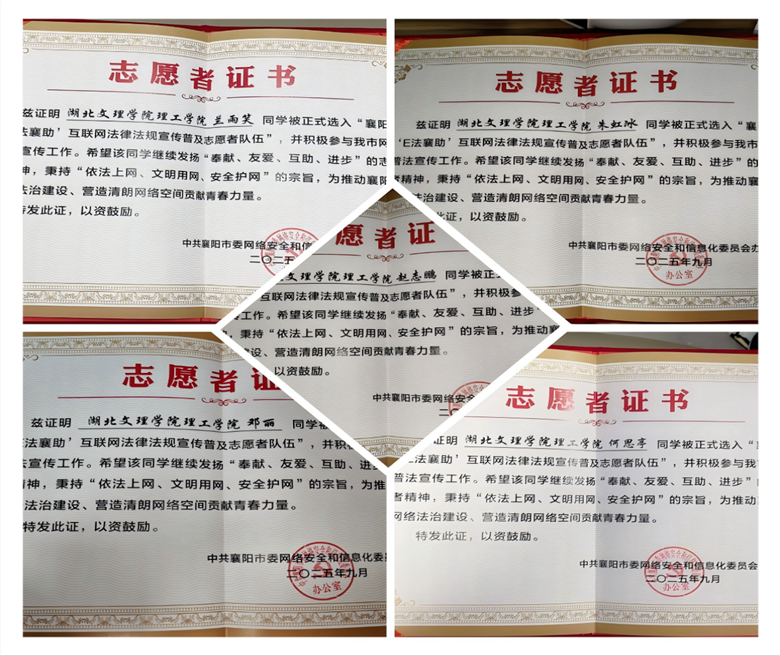 志愿者证书
兹证明 湖北文理学院理工学院兰雨笑 同学被正式选入“襄阳
法襄助’互联网法律法规宣传普及志愿者队伍”，并积极参与我市网
宣传工作。希望该同学继续发扬“奉献、友爱、互助、进步”的志
神，秉持“依法上网、文明用网、安全护网”的宗旨，为推动襄阳
法治建设、营造清朗网络空间贡献青春力量。
特发此证，以资鼓励。
中共襄阳市委网络安全和信息
二〇二五年
志愿者证书
兹证明 湖北文理学院理工学院朱虹冰 同学被正式选入“襄
‘E法襄助’互联网法律法规宣传普及志愿者队伍”，并积极参与我市
普法宣传工作。希望该同学继续发扬“奉献、友爱、互助、进步”的
者精神，秉持“依法上网、文明用网、安全护网”的宗旨，为推动襄
法治建设、营造清朗网络空间贡献青春力量。
此证，以资鼓励。
中共襄阳市委网络安全和信息化委员会办
二〇二五年九月
办公室
愿者证
文理学院理工学院赵志鹏 同学被正式
互联网法律法规宣传普及志愿者队伍”，并积极参
。希望该同学继续发扬“奉献、友爱、互助、进步”
，秉持“依法上网、文明用网、安全护网”的宗旨，为推动襄
建设、营造清朗网络空间贡献青春力量。
以资鼓励。
中共襄阳市委网络安全
二〇
志愿者证
兹证明 湖北文理学院理工学院邓丽 同学被
法襄助’互联网法律法规宣传普及志愿者队伍”，并积
宣传工作。希望该同学继续发扬“奉献、友爱、互助、进步
精神，秉持“依法上网、文明用网、安全护网”的宗旨，为推
法治建设、营造清朗网络空间贡献青春力量。
特发此证，以资鼓励。
中共襄阳市委网络安全和信息化委员
二〇二五年九月
办公室
志愿者证书
证明 湖北文理学院理工学院何思亭 同学被正式选入“
E法襄助’互联网法律法规宣传普及志愿者队伍”，并积极参与我
普法宣传工作。希望该同学继续发扬“奉献、友爱、互助、进步”
者精神，秉持“依法上网、文明用网、安全护网”的宗旨，为推动
网络法治建设、营造清朗网络空间贡献青春力量。
特发此证，以资鼓励。
中共襄阳市委网络安全和信息化委员会
二〇二五年九月
办公室